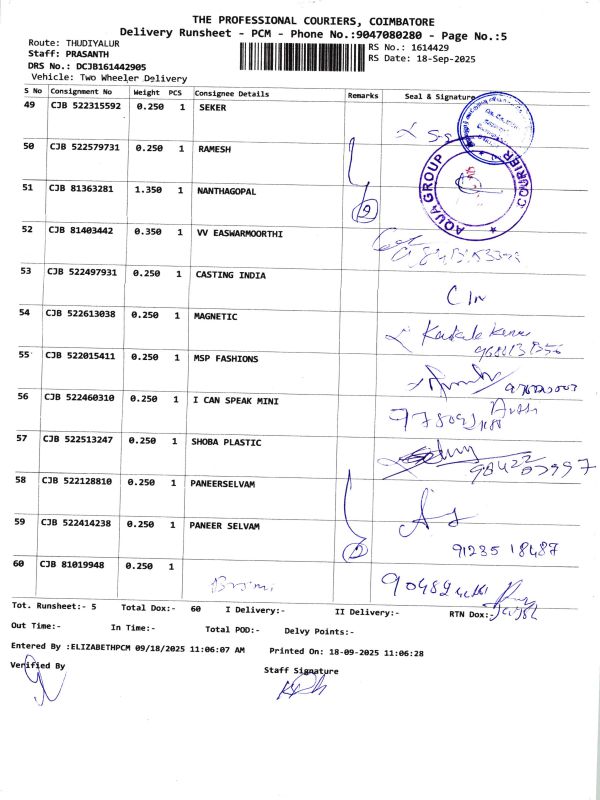 THE PROFESSIONAL COURIERS, COIMBATORE
Delivery Runsheet - PCM - Phone No.:9047080280 - Page No.:5
Route: THUDIYALUR
RS No.: 1614429
Staff: PRASANTH
RS Date: 18-Sep-2025
DRS No.: DCJB161442905
Vehicle: Two Wheeler Delivery
S No Consignment No Weight PCS Consignee Details Remarks Seal & Signature
49 CJB 522315592 0.250 1 SEKER
50 CJB 522579731 0.250 1 RAMESH
51 CJB 81363281 1.350 1 NANTHAGOPAL
2
AQUA GROUP COURIER
52 CJB 81403442 0.350 1 VV EASWARMOORTHI
53 CJB 522497931 0.250 1 CASTING INDIA
54 CJB 522613038 0.250 1 MAGNETIC
55 CJB 522015411 0.250 1 MSP FASHIONS
56 CJB 522460310 0.250 1 I CAN SPEAK MINI
57 CJB 522513247 0.250 1 SHOBA PLASTIC
58 CJB 522128810 0.250 1 PANEERSELVAM
59 CJB 522414238 0.250 1 PANEER SELVAM
2 91235 18487
60 CJB 81019948 0.250 1
Tot. Runsheet:- 5 Total Dox:- 60 I Delivery:- II Delivery:- RTN Dox:-
Out Time:- In Time:- Total POD:- Delvy Points:-
Entered By :ELIZABETHPCM 09/18/2025 11:06:07 AM Printed On: 18-09-2025 11:06:28
Verified By Staff Signature